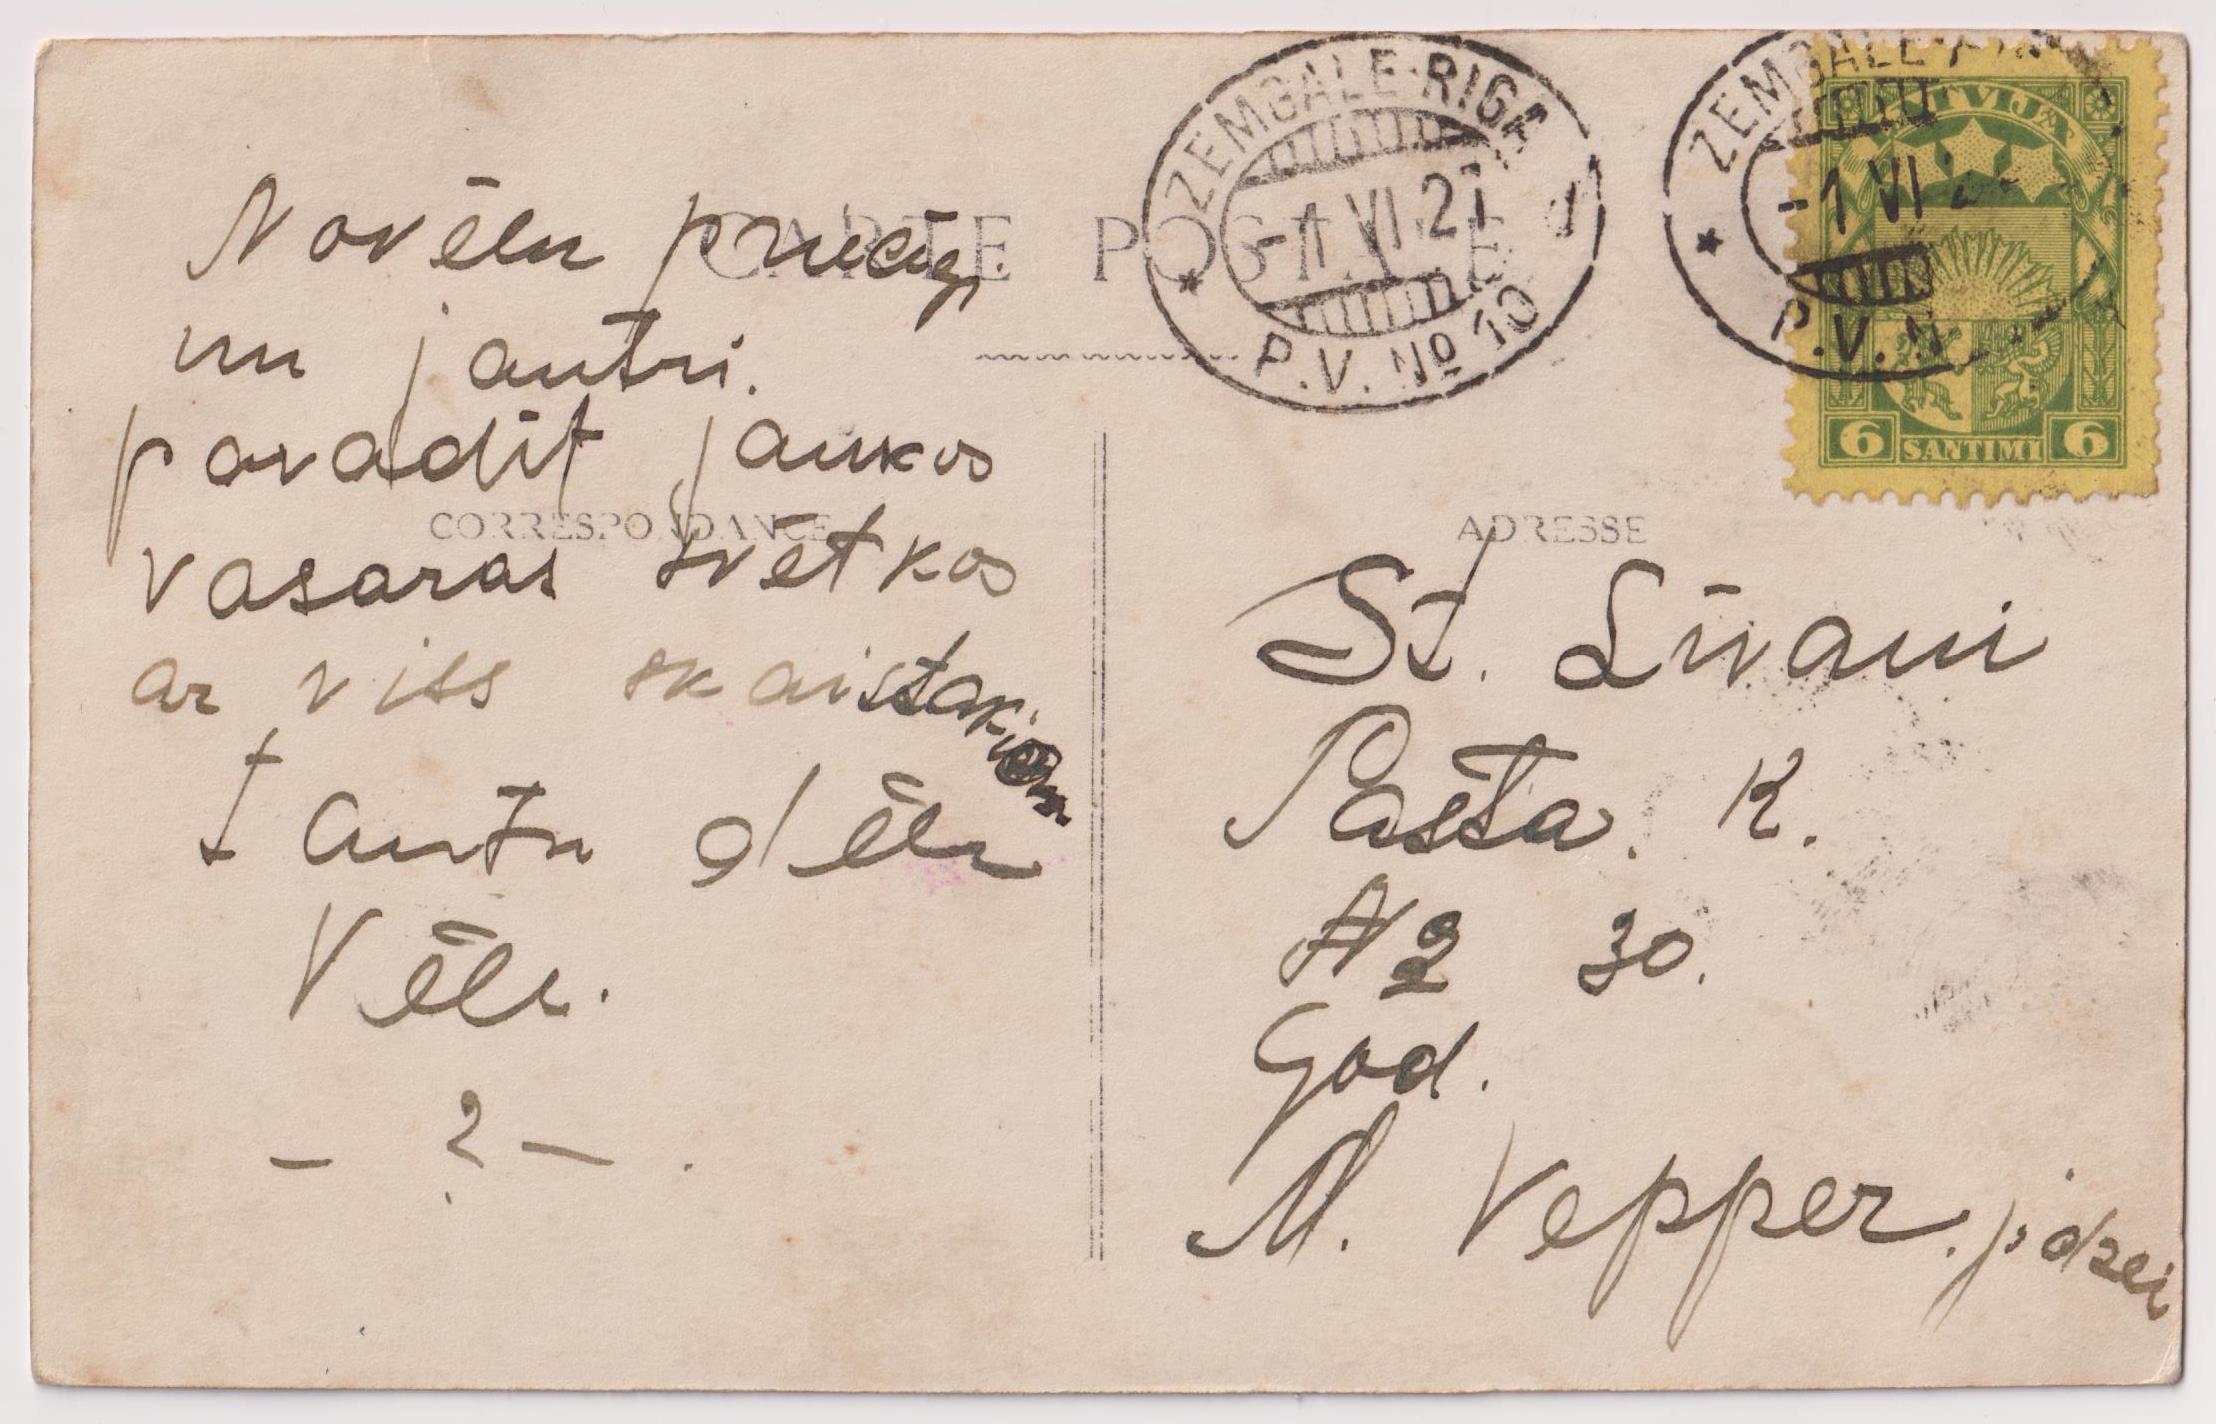 CARTE POSTALE
ZEMGALE-RIGA
-1 VI 27
P.V. No 10
ZEMGALE-
-1 VI
P.V. N
LATVIJA
6 SANTIMI 6
CORRESPONDANCE
ADRESSE
Novēlu priecīgi
un jautri.
pavadīt jaukos
vasaras svētkos
ar viss skaistākiem
Tautu dēlu
Vēlu.
- ? - .
St. Līvani
Pasta. K.
№ 30.
God.
M. Vepper. j-dzei